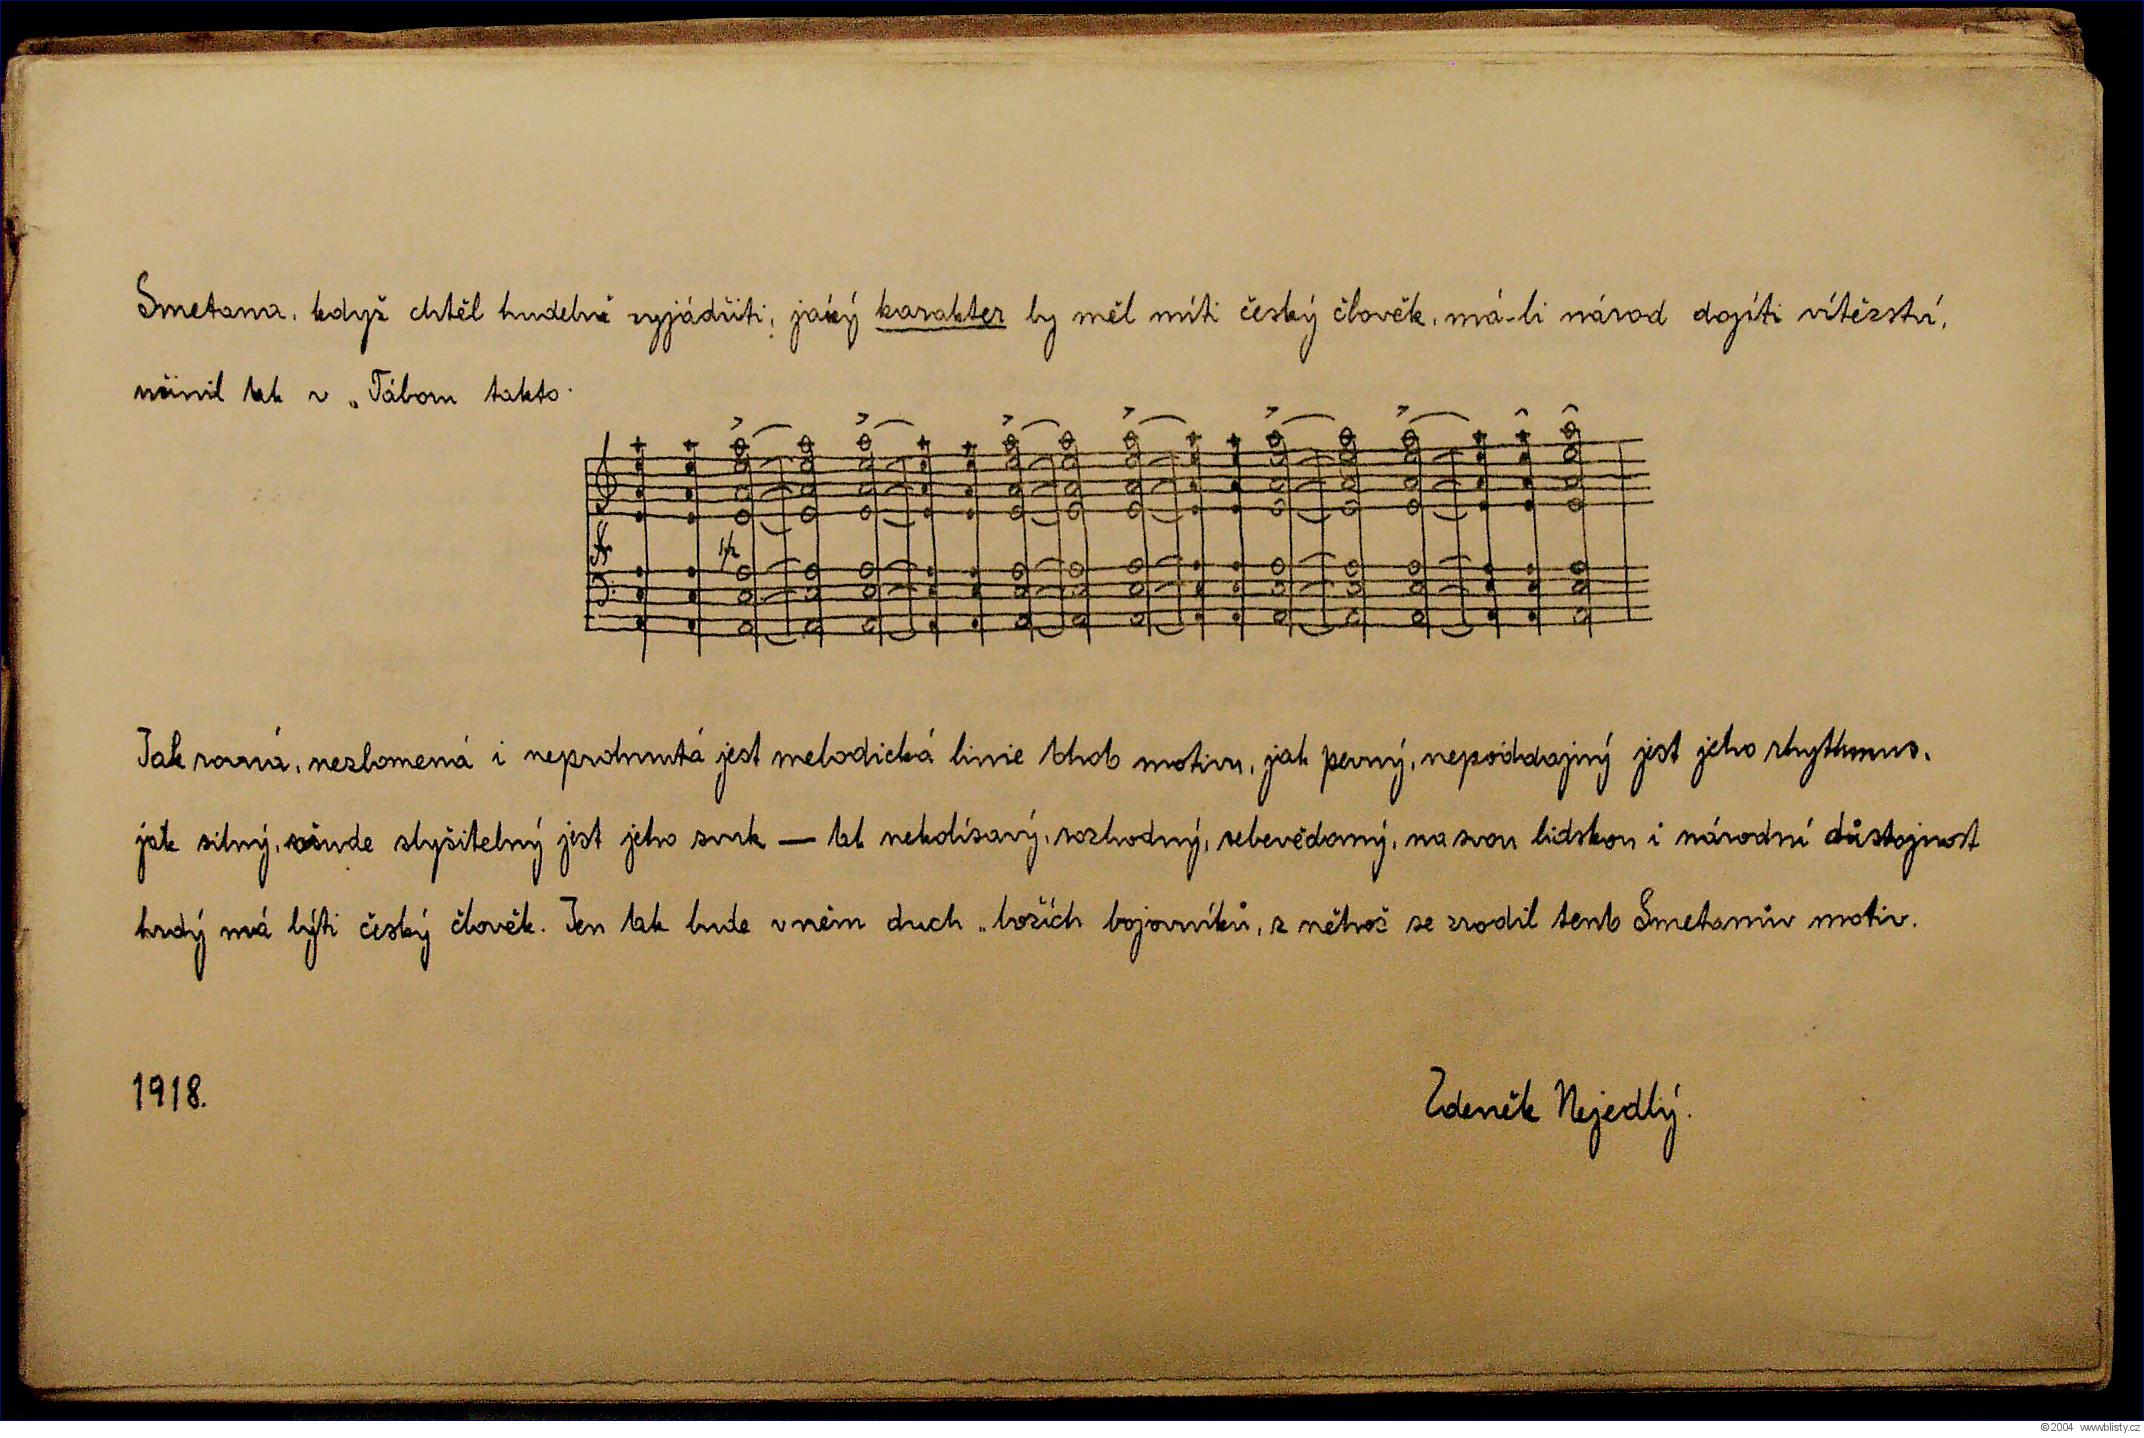 Smetana, když chtěl hudebně vyjádřiti, jaký karakter by měl míti český člověk, má-li národ dojíti vítězství,
učinil tak v „Táboru takto.
Jak rovná, nezlomená i neprohnutá jest melodická linie tohoto motivu, jak pevný, nepoddajný jest jeho rhythmus,
jak silný, všude slyšitelný jest jeho zvuk — tak nekolísavý, rozhodný, sebevědomý, na svou lidskou i národní důstojnost
hrdý má býti český člověk. Jen tak bude v něm duch „božích bojovníků, z něhož se zrodil tento Smetanův motiv.
1918.
Zdeněk Nejedlý.
© 2004 www.blisty.cz